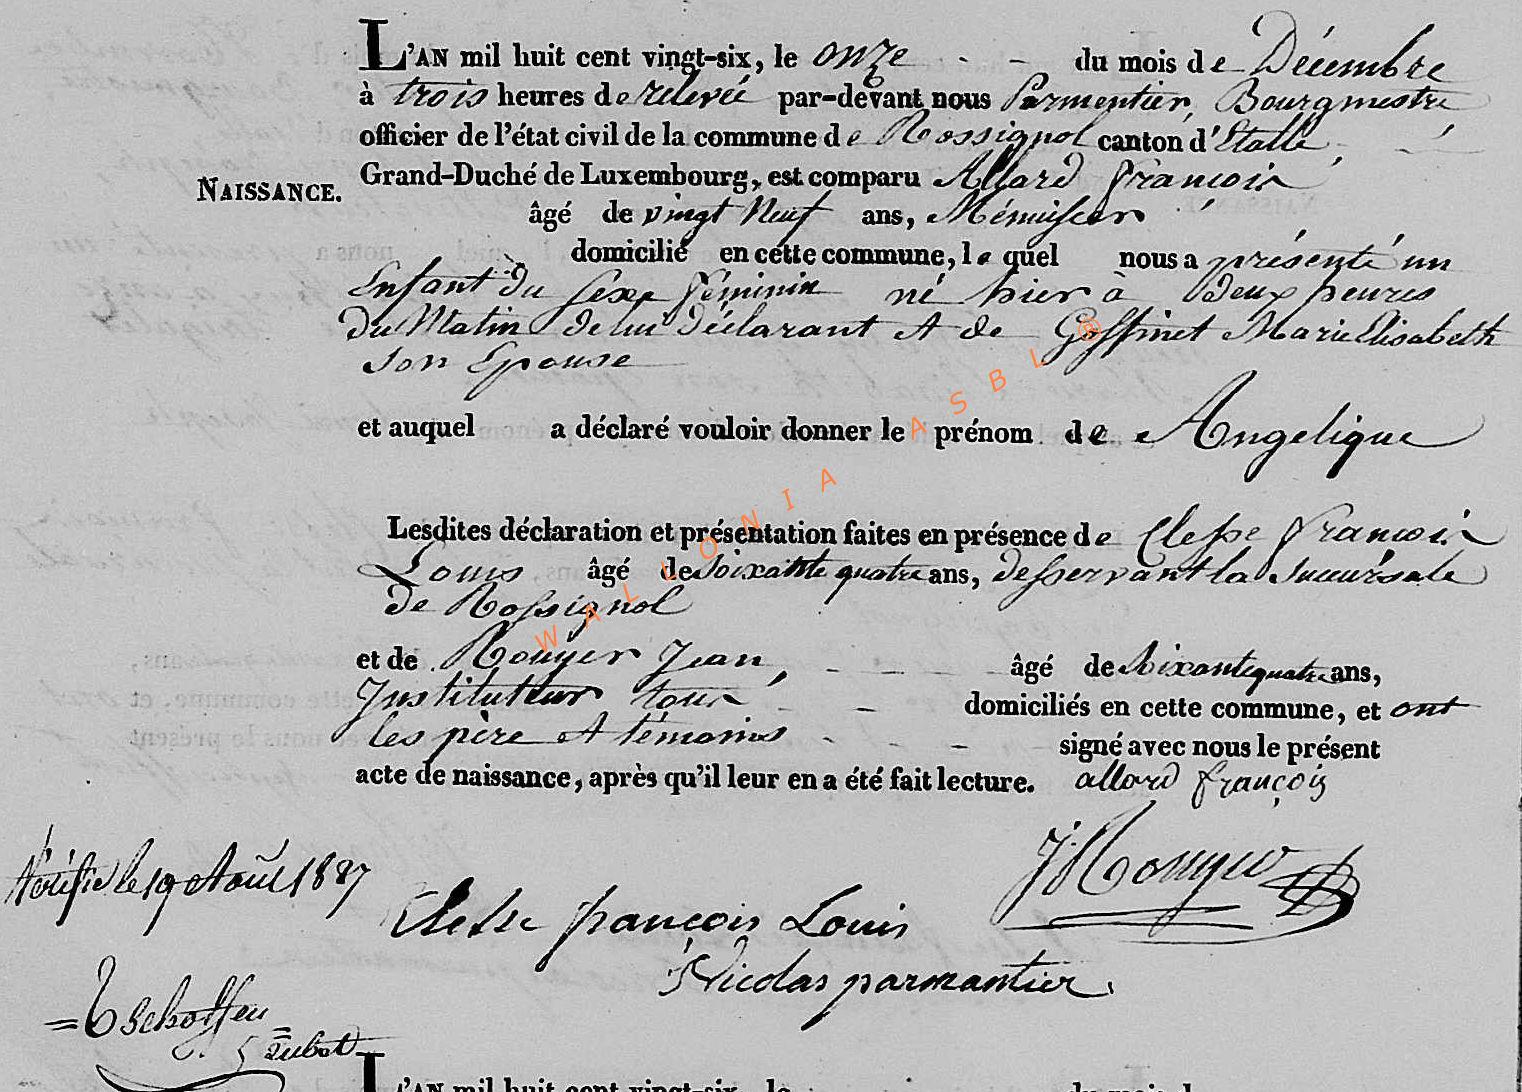 L'AN mil huit cent vingt-six, le onze - - du mois de Décembre
à trois heures de relevée par-devant nous Parmentier, Bourgmestre
officier de l'état civil de la commune de Rossignol canton d'Etalle,
NAISSANCE.
Grand-Duché de Luxembourg, est comparu Allard François
âgé de vingt Neuf ans, Ménuisier
domicilié en cette commune, le quel nous a présenté un
Enfant du sexe féminin né hier à deux heures
du Matin de lui Déclarant et de Goffinet Marie Elisabeth
son Epouse
et auquel a déclaré vouloir donner le prénom de Angelique
Lesdites déclaration et présentation faites en présence de Clesse François
Louis âgé de soixante quatre ans, desservant la succursale
de Rossignol
et de Rouyer Jean, - - - âgé de soixante quatre ans,
Instituteur tous - - domiciliés en cette commune, et ont
les père et témoins - - - signé avec nous le présent
acte de naissance, après qu'il leur en a été fait lecture. allard françois
J. Rouyer
Vérifié le 19 Août 1827
Clesse françois Louis
Nicolas parmantier.
L'AN mil huit cent vingt-six, le du mois d
WALLONIA ASBL ®